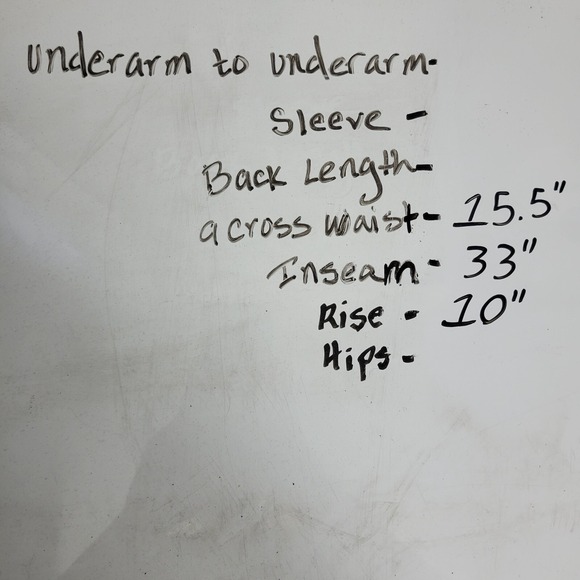 underarm to underarm-
Sleeve -
Back Length-
across waist- 15.5"
Inseam - 33"
Rise - 10"
Hips -